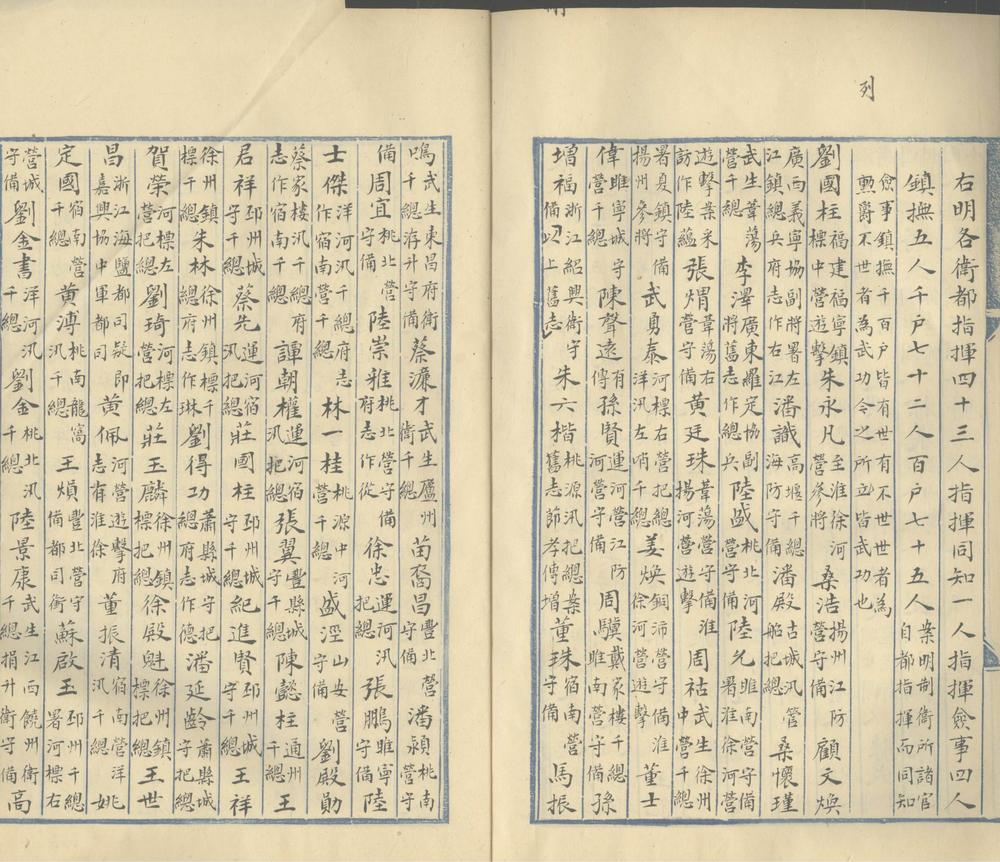 列
右明各衛都指揮四十三人指揮同知一人指揮僉事四人
鎮撫五人千戶七十二人百戶七十五人案明制衛所諸官自都指揮而同知
僉事鎮撫千百戶皆有世有不世世者為勳爵不世者為武功令之所立皆武功也
劉國柱福建福寧鎮標中營遊擊朱永凡至淮徐河營參將桑浩揚州江防營守備顧文煥
廣西義寧協副將署左江鎮總兵府志作右江潘識高堰千總海防守備潘殿古城汛管河船把總桑懷瑾
武生葦蕩營千總李澤廣東羅定協副將舊志作總兵陸盛桃北河營守備陸允睢南營守備署淮徐河營
遊擊案采訪作陸蘊張熠葦蕩右營守備黃廷珠葦蕩營守備淮揚河營遊擊周祜武生徐州中營千總
署夏鎮守備揚州參將武勇泰河標右營把總洋汛左哨千總姜煥銅沛營守備淮徐河營遊擊董士
偉睢寧城守營千總陳聲遠有傳孫賢運河營江防河營守備周驥戴家樓千總睢南營守備孫
增福浙江紹興衛守備以上舊志朱六楷桃源汛把總案舊志節孝傳增董珠宿南營守備馬振
鳴武生東昌府衛千總洊升守備蔡濂才武生廬州衛千總苗裔昌豐北營守備潘潁桃南營守
備周宜桃北營守備陸崇雅桃北營守備府志作從徐忠運河汛把總張鵬睢寧守備陸
士傑洋河汛千總府志作宿南營千總林一桂桃源中河營千總盛溼山安營守備劉殿勛
蔡家樓汛千總府志作宿南千總諢朝權運河宿汛把總張翼豐縣城守千總陳懿柱通州千總王
君祥邳州城守千總蔡先運河宿汛把總莊國柱邳州城守千總紀進賢邳州城守千總王祥
徐州鎮標千總朱林徐州鎮標千總府志作琳劉得功蕭縣城守把總府志作德潘延齡蕭縣城守把總
賀榮河標左營把總劉琦河標左營把總莊玉麟徐州鎮標把總徐殿魁徐州鎮標把總王世
昌浙江海鹽都司疑即嘉興協中軍都司黃佩河營遊擊府志有淮徐董振清宿南營洋汛千總姚
定國宿南營千總黃溥桃南龍窩汛千總王熉豐北營守備都司銜蘇啟玉邳州千總署河標右
營城守備劉金書洋河汛千總劉金桃北汛千總陸景康武生江西饒州衛千總捐升衛守備高